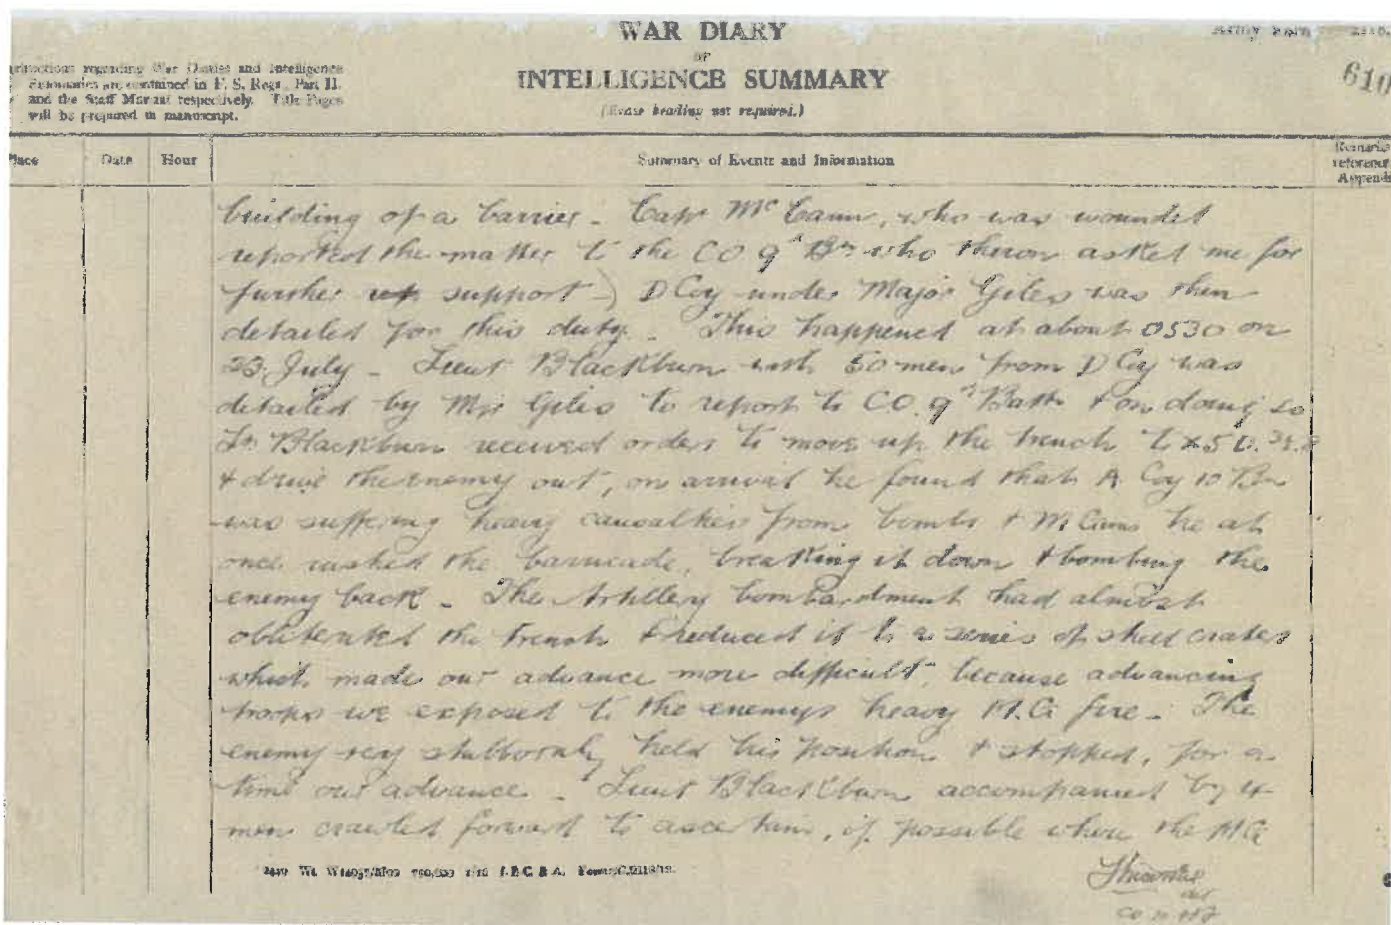 WAR DIARY
OF
INTELLIGENCE SUMMARY
(Erase heading not required.)
Army Form
610
Instructions regarding War Diaries and Intelligence
Summaries are contained in F. S. Regs., Part II.
and the Staff Manual respectively. Title Pages
will be prepared in manuscript.
Place
Date
Hour
Summary of Events and Information
Remarks
reference
Append
building of a barrier - Capt McCann, who was wounded
reported the matter to the CO 9th Bn who theron asked me for
further support -) D Coy under Major Giles was then
detailed for this duty - This happened at about 0530 on
23 July - Lieut Blackburn with 50 men from D Coy was
detailed by Mjr Giles to report to CO. 9th Batt & on doing so
Lt Blackburn received orders to move up the trench to
& drive the enemy out, on arrival he found that A Coy 10 Bn
was suffering heavy causalties from bombs & M Guns he at
once rushed the barricade, breaking it down & bombing the
enemy back - The Artillery bombardment had almost
obliterated the trench & reduced it to a series of shell craters
which made our advance more difficult, because advancing
troops we exposed to the enemys heavy M.G fire - The
enemy very stubbornly held his position & stopped, for a
time our advance - Lieut Blackburn accompanied by 4
men crawled forward to ascertain, if possible where the MG